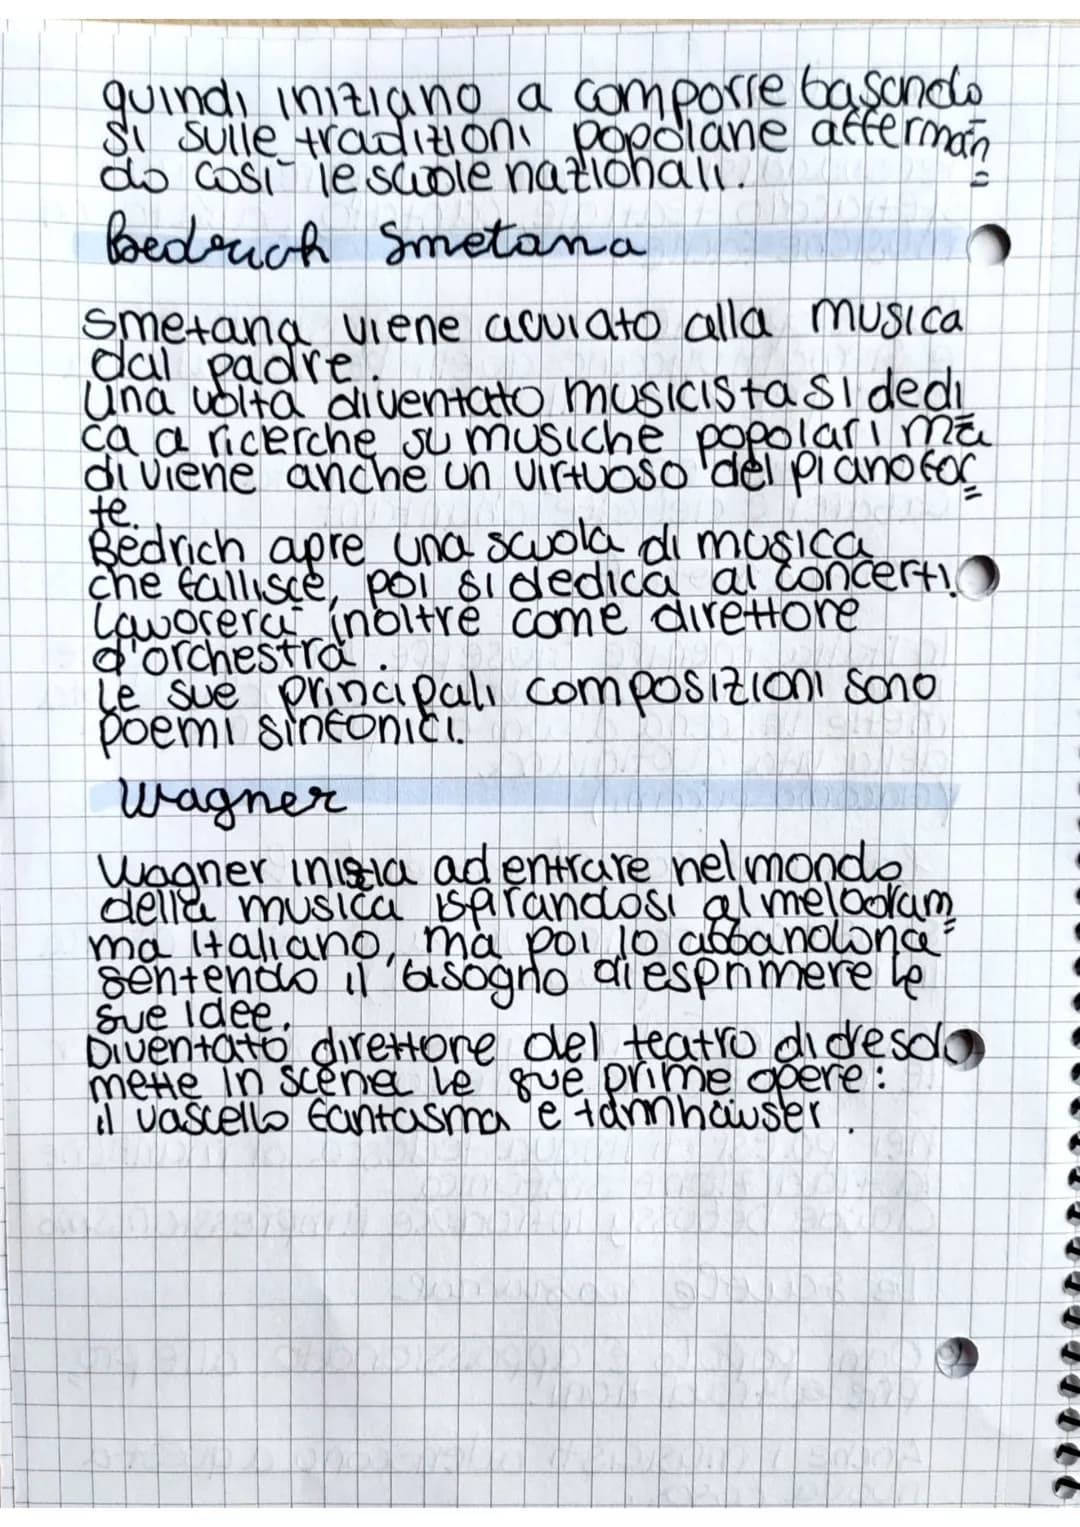 quindi iniziano a comporre basando
si sulle tradizioni popolane afferman=
do così le scuole nazionali.
Bedrich Smetana
Smetana viene avviato alla musica
dal padre.
Una volta diventato musicista si dedi
ca a ricerche su musiche popolari ma
diviene anche un virtuoso del pianofor=
te.
Bedrich apre una scuola di musica
che fallisce, poi si dedica ai concerti.
Lavorerà inoltre come direttore
d'orchestra.
Le sue principali composizioni sono
poemi sinfonici.
Wagner
Wagner inizia ad entrare nel mondo
della musica ispirandosi al melodram=
ma italiano, ma poi lo abbandona
sentendo il bisogno di esprimere le
sue idee.
Diventato direttore del teatro di dresda
mette in scena le sue prime opere:
il vascello fantasma e tannhäuser.